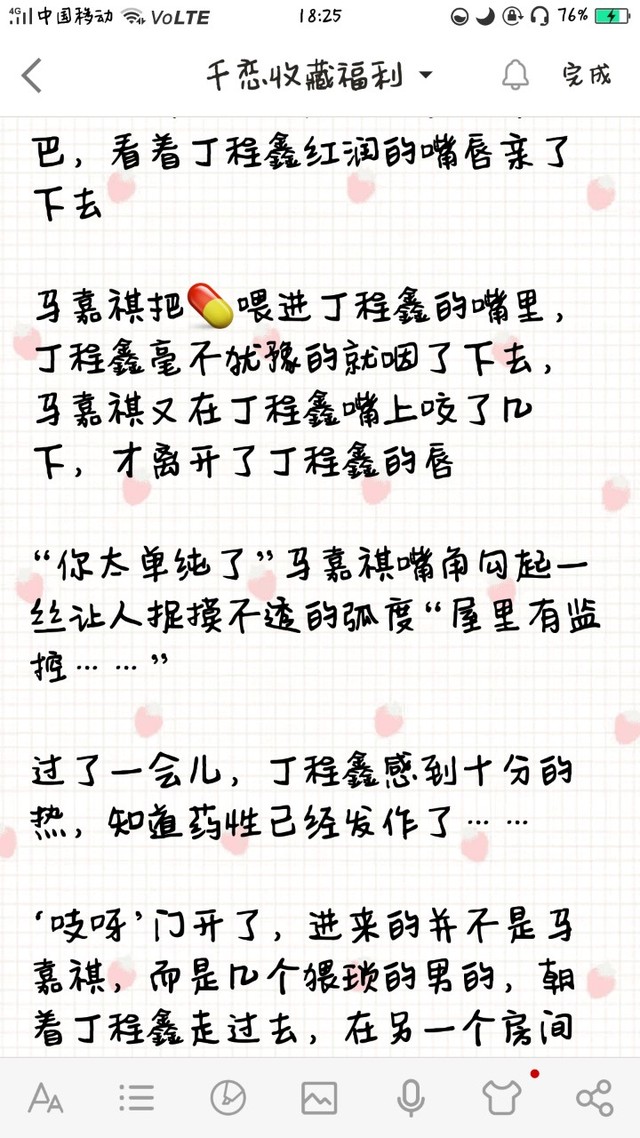 中国移动 VoLTE 18:25 76%
千恋收藏福利 完成
巴，看着丁程鑫红润的嘴唇亲了
下去
马嘉祺把💊喂进丁程鑫的嘴里，
丁程鑫毫不犹豫的就咽了下去，
马嘉祺又在丁程鑫嘴上咬了几
下，才离开了丁程鑫的唇
“你太单纯了”马嘉祺嘴角勾起一
丝让人捉摸不透的弧度“屋里有监
控……”
过了一会儿，丁程鑫感到十分的
热，知道药性已经发作了……
‘吱呀’门开了，进来的并不是马
嘉祺，而是几个猥琐的男的，朝
着丁程鑫走过去，在另一个房间